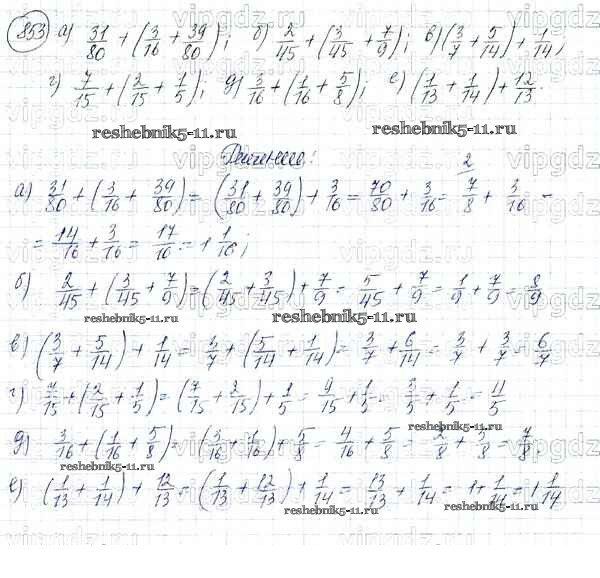 853 а) 31/80 + (3/16 + 39/80); б) 2/45 + (3/45 + 7/9); в) (3/7 + 5/14) + 1/14;
г) 7/15 + (2/15 + 1/5); д) 3/16 + (1/16 + 5/8); е) (1/13 + 1/14) + 12/13.
reshebnik5-11.ru reshebnik5-11.ru
Решение:
а) 31/80 + (3/16 + 39/80) = (31/80 + 39/80) + 3/16 = 70/80 + 3/16 = 7/8 2 + 3/16 =
= 14/16 + 3/16 = 17/16 = 1 1/16;
б) 2/45 + (3/45 + 7/9) = (2/45 + 3/45) + 7/9 = 5/45 + 7/9 = 1/9 + 7/9 = 8/9
reshebnik5-11.ru reshebnik5-11.ru
в) (3/7 + 5/14) + 1/14 = 3/7 + (5/14 + 1/14) = 3/7 + 6/14 = 3/7 + 3/7 = 6/7
г) 7/15 + (2/15 + 1/5) = (7/15 + 2/15) + 1/5 = 9/15 + 1/5 = 3/5 + 1/5 = 4/5
д) 3/16 + (1/16 + 5/8) = (3/16 + 1/16) + 5/8 = 4/16 + 5/8 = 2/8 + 5/8 = 7/8.
reshebnik5-11.ru reshebnik5-11.ru
е) (1/13 + 1/14) + 12/13 = (1/13 + 12/13) + 1/14 = 13/13 + 1/14 = 1 + 1/14 = 1 1/14
reshebnik5-11.ru reshebnik5-11.ru
vipgdz